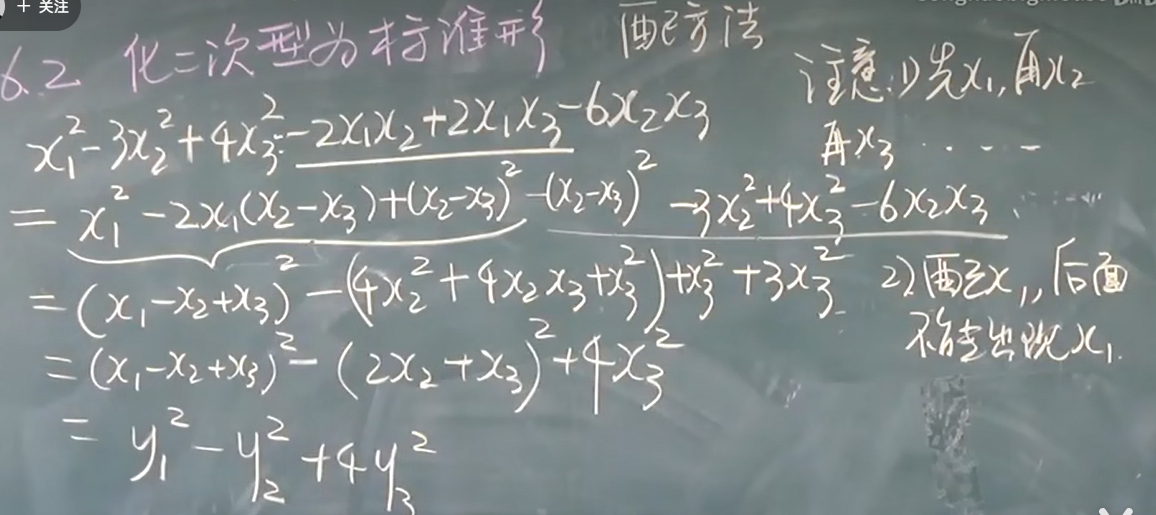 + 关注
6.2 化二次型为标准形 配方法
注意:1)先x₁,再x₂
再x₃ ····
x₁²-3x₂²+4x₃²-2x₁x₂+2x₁x₃-6x₂x₃
= x₁²-2x₁(x₂-x₃)+(x₂-x₃)²-(x₂-x₃)²-3x₂²+4x₃²-6x₂x₃
= (x₁-x₂+x₃)²-(4x₂²+4x₂x₃+x₃²)+x₃²+3x₃²
2)配完x₁,后面
不能出现x₁.
= (x₁-x₂+x₃)²-(2x₂+x₃)²+4x₃²
= y₁²-y₂²+4y₃²